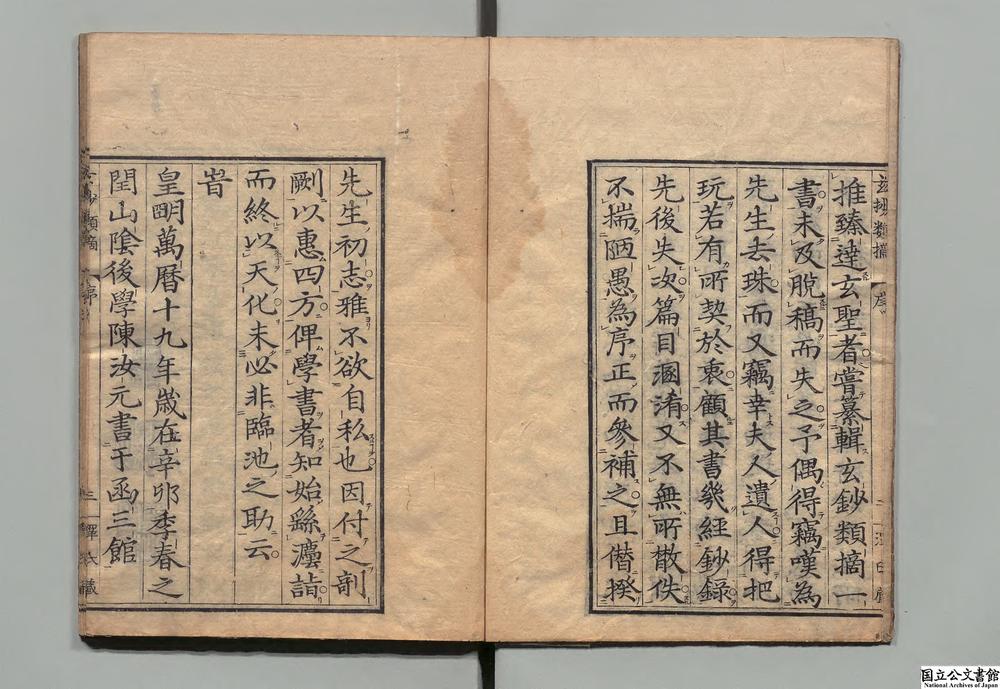 推臻達玄聖者嘗纂輯玄鈔類摘一
書未及脫稿而失之予偶得竊嘆為
先生去珠而又竊幸夫人遺人得把
玩若有所契於衷顧其書幾經鈔錄
先後失次篇目溷淆又不無所散佚
不揣陋愚為序正而參補之且僭揆
先生初志雅不欲自私也因付之剞
劂以惠四方俾學書者知始繇濃詣
而終以天化未必非臨池之助云
旹
皇明萬曆十九年歲在辛卯季春之
閏山陰後學陳汝元書于函三館
国立公文書館
National Archives of Japan